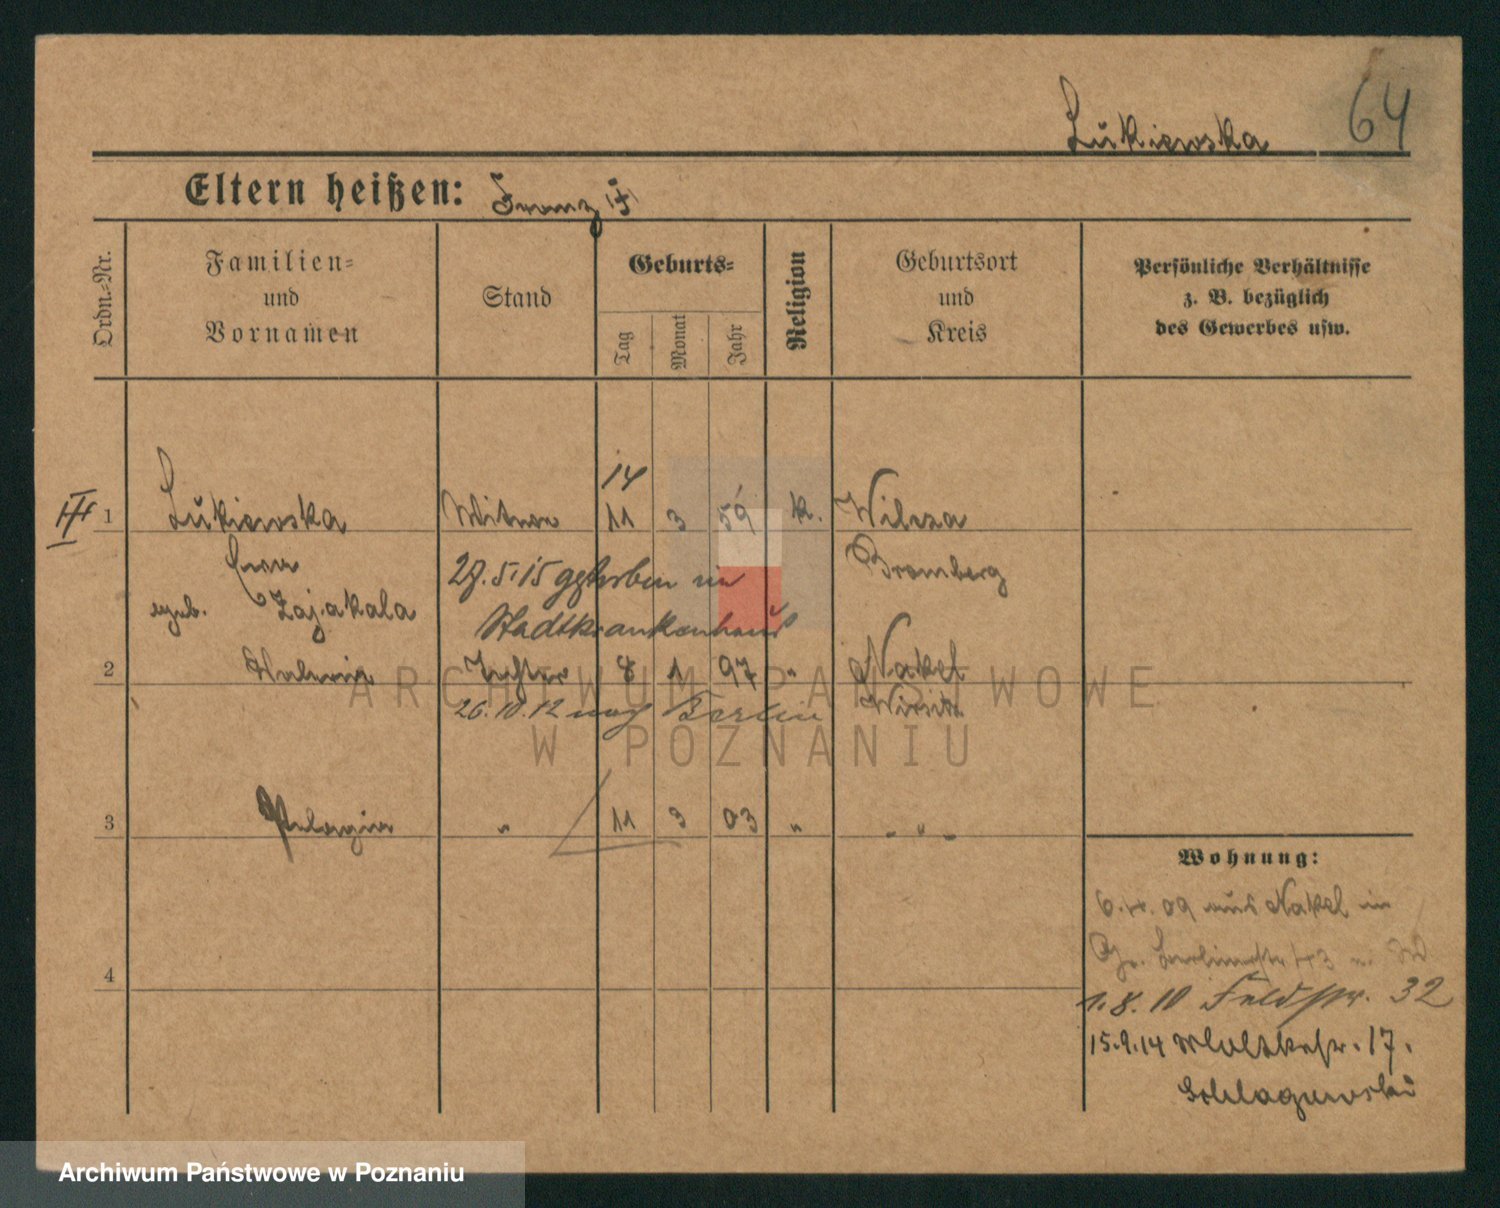 Lukiewska 64
Eltern heißen: Franz (†)
Ordn.-Nr.
Familien-
und
Vornamen
Stand
Geburts-
Tag
Monat
Jahr
Religion
Geburtsort
und
Kreis
Persönliche Verhältnisse
z. B. bezüglich
des Gewerbes usw.
14
III 1 Lukiewska Witwe 11 3 59 k. Wilcza
Ewa 27.5.15 gestorben in Bromberg
geb. Zajakala Stadtkrankenhaus
2 Valeria Tochter 8 1 97 " Nakel
26.10.12 nach Berlin Wirsitz
3 Pelagia " 11 3 03 " - " -
Wohnung:
6.4.09 aus Nakel in
4
1.8.10 Feldstr. 32
15.9.14 Moltkestr. 17.
ARCHIWUM PAŃSTWOWE
W POZNANIU
Archiwum Państwowe w Poznaniu